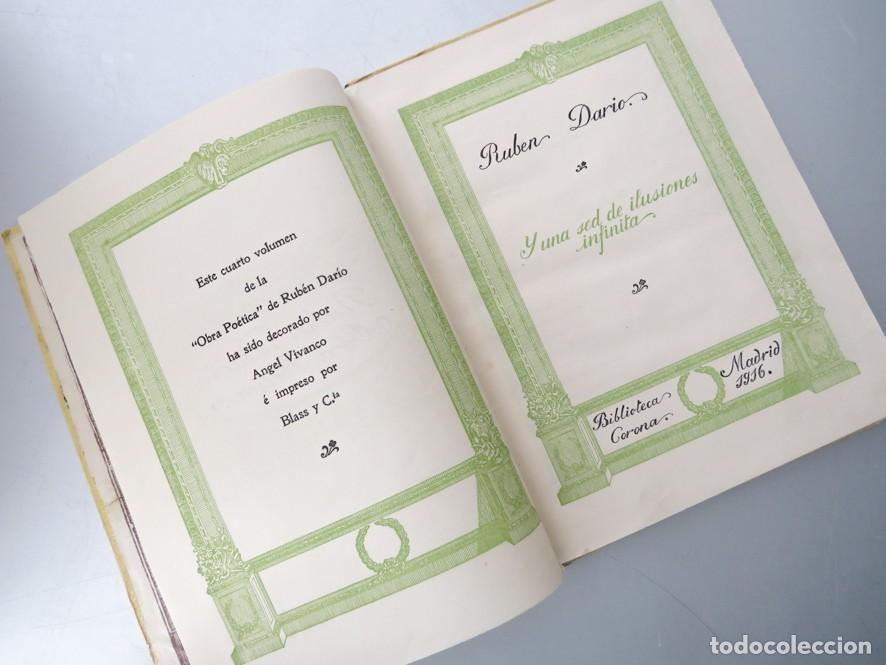 Este cuarto volumen
de la
"Obra Poética" de Rubén Darío
ha sido decorado por
Angel Vivanco
é impreso por
Blass y C.ía
Ruben Dario.
Y una sed de ilusiones
infinita
Biblioteca
Corona.
Madrid
1916.
todocoleccion